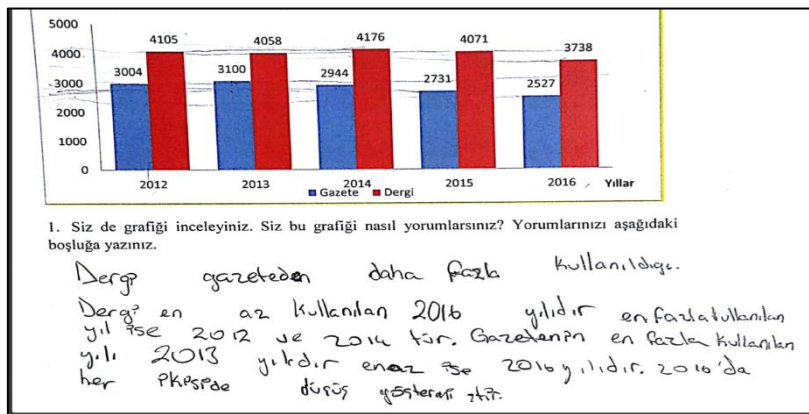 5000
4000
3000
2000
1000
0
3004 4105 3100 4058 2944 4176 2731 4071 2527 3738
2012 2013 2014 2015 2016 Yıllar
Gazete Dergi
1. Siz de grafiği inceleyiniz. Siz bu grafiği nasıl yorumlarsınız? Yorumlarınızı aşağıdaki
boşluğa yazınız.
Dergi gazeteden daha fazla kullanıldığı.
Dergi en az kullanılan 2016 yılıdır en fazla kullanılan
yıl ise 2012 ve 2014 tür. Gazetenin en fazla kullanılan
yılı 2013 yılıdır en az ise 2016 yılıdır. 2016'da
her ikiside düşüş göstermiştir.